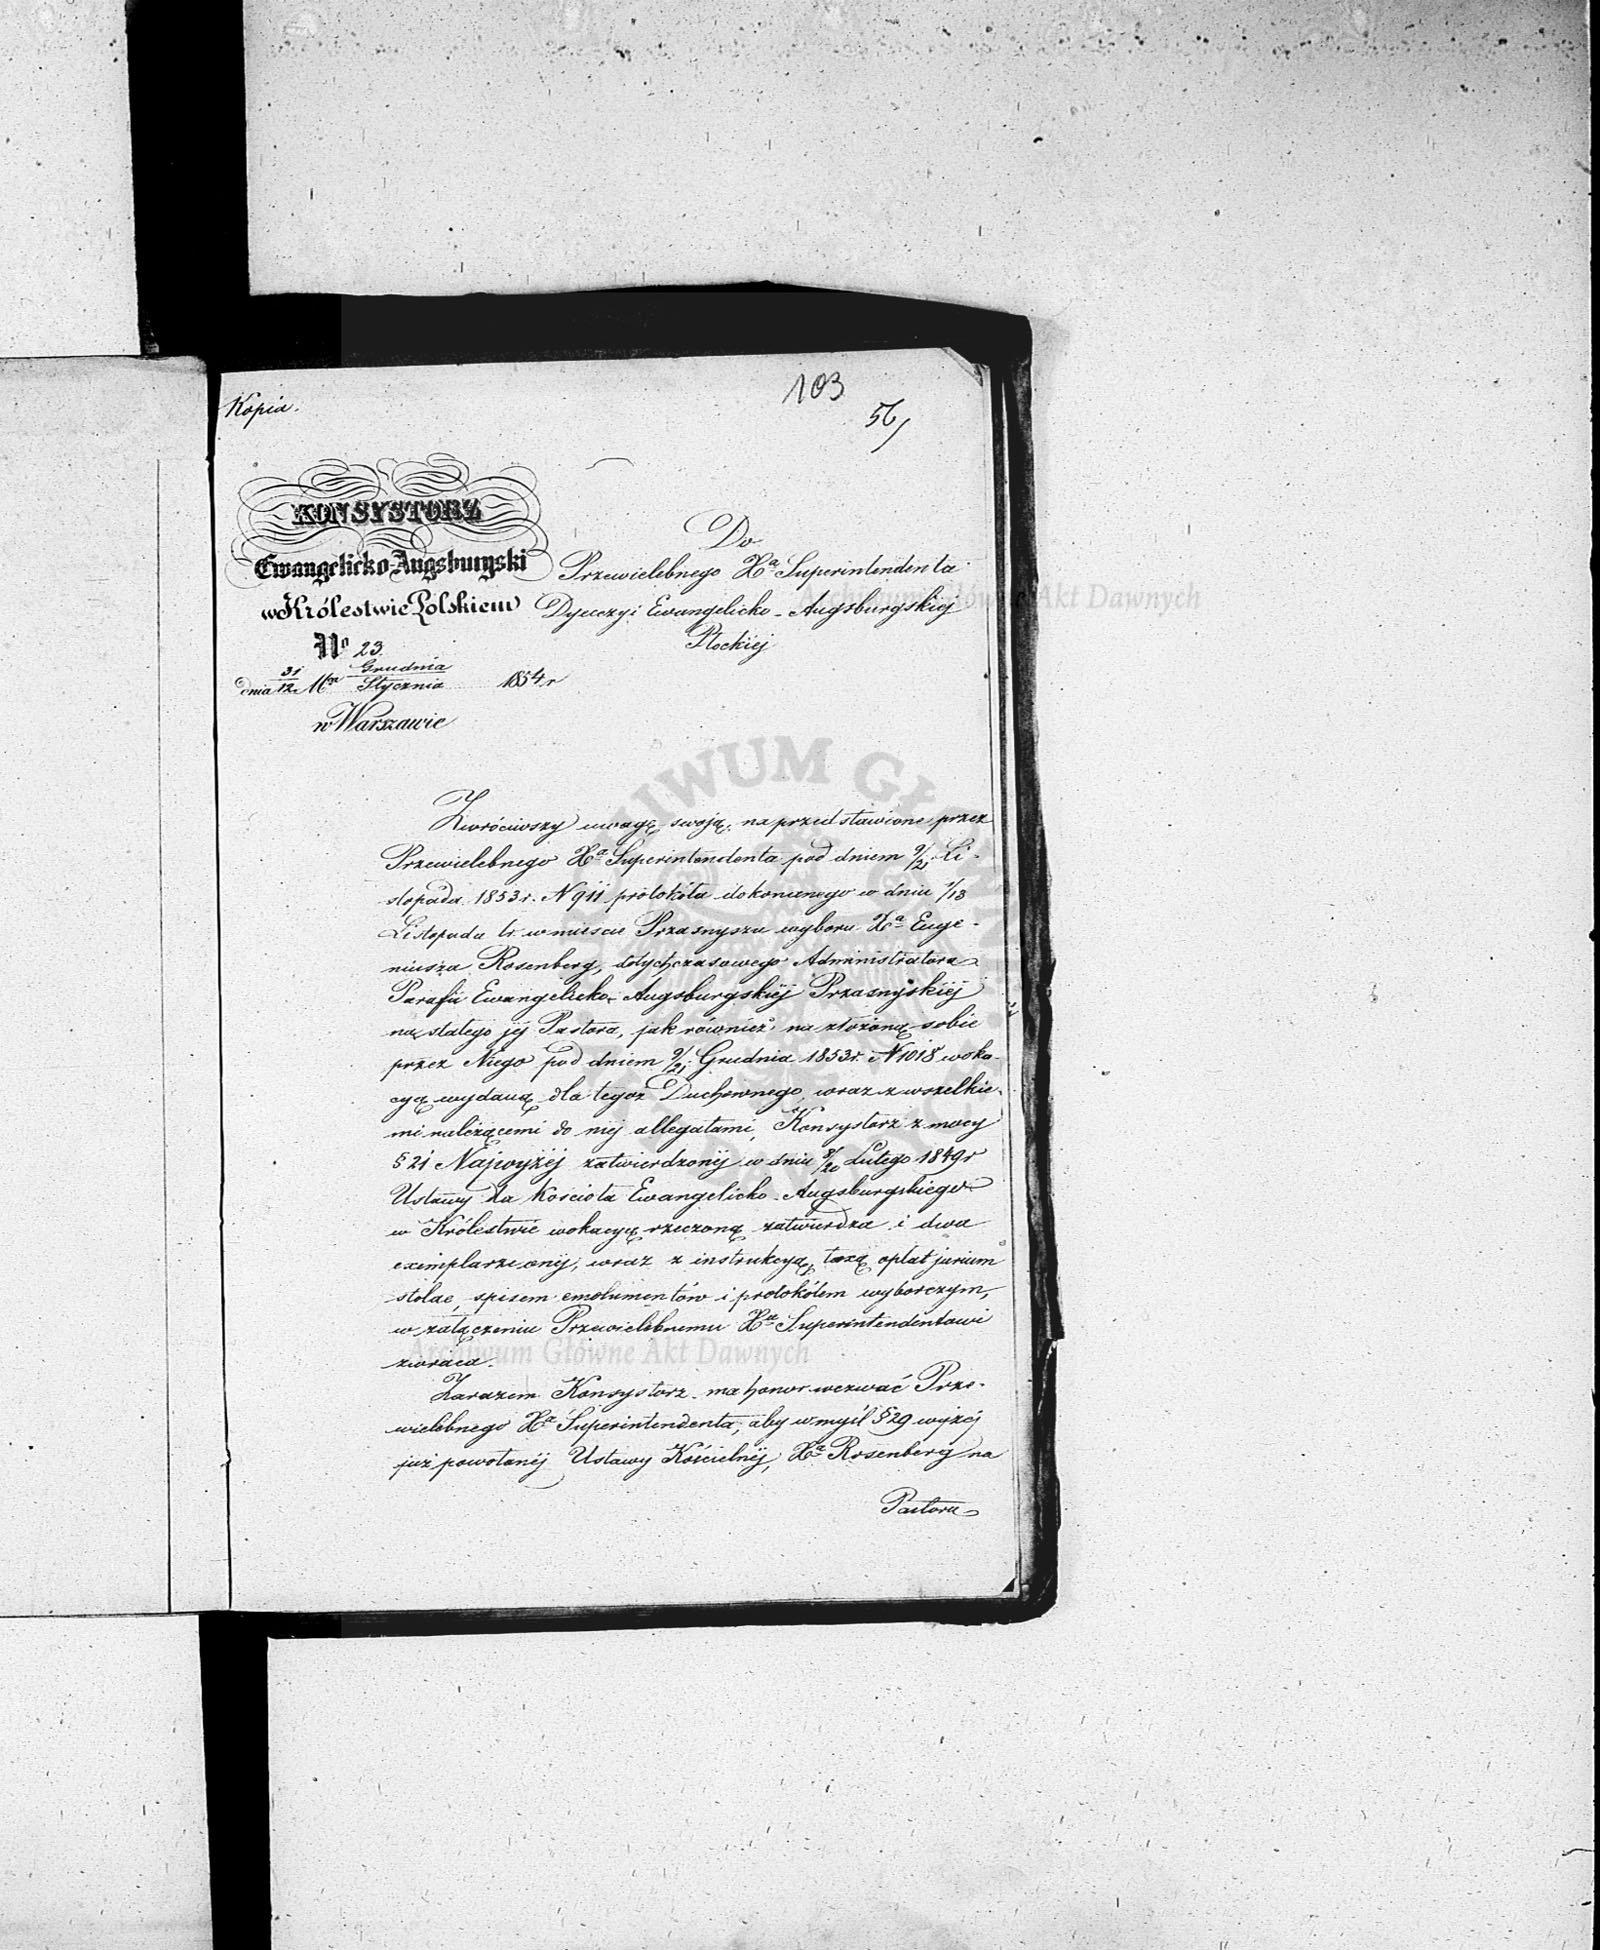 Kopia.
103
56
KONSYSTORZ
Ewangelicko-Augsburgski
w Królestwie Polskiem
No 23
dnia 31/12 Mca Grudnia/Stycznia 1854 r
w Warszawie
Do
Przewielebnego Xa Superintendenta
Dyecezyi Ewangelicko-Augsburgskiej
Płockiej
Zwróciwszy uwagę swoją, na przedstawione przez
Przewielebnego Xa Superintendenta pod dniem 9/21 Li-
stopada 1853 r. N 911 protokóła dokonanego w dniu 1/13
Listopada tr. w mieście Przasnyszu wyboru Xa Euge-
niusza Rosenberg, dotychczasowego Administratora
Parafii Ewangelicko-Augsburgskiej Przasnyskiej
na stałego jej Pastora, jak również na złożoną sobie
przez Niego pod dniem 9/21 Grudnia 1853 r. N 1018 woka-
cyą wydaną dla tegoż Duchownego, wraz z wszelkie-
mi należącemi do niej allegatami, Konsystorz z mocy
§ 21 Najwyżej zatwierdzonej w dniu 8/20 Lutego 1849 r
Ustawy dla Kościoła Ewangelicko-Augsburgskiego
w Królestwie wokacyą rzeczoną zatwierdza i dwa
exemplarze onej, wraz z instrukcyą, taxą opłat jurium
stolae, spisem emolumentów i protokółem wyborczym,
w załączeniu Przewielebnemu Xu Superintendentowi
zwraca.
Zarazem Konsystorz ma honor wezwać Prze-
wielebnego Xa Superintendenta, aby w myśl § 29 wyżej
już powołanej Ustawy Kościelnej, Xa Rosenberg na
Pastora
Archiwum Główne Akt Dawnych
Archiwum Główne Akt Dawnych